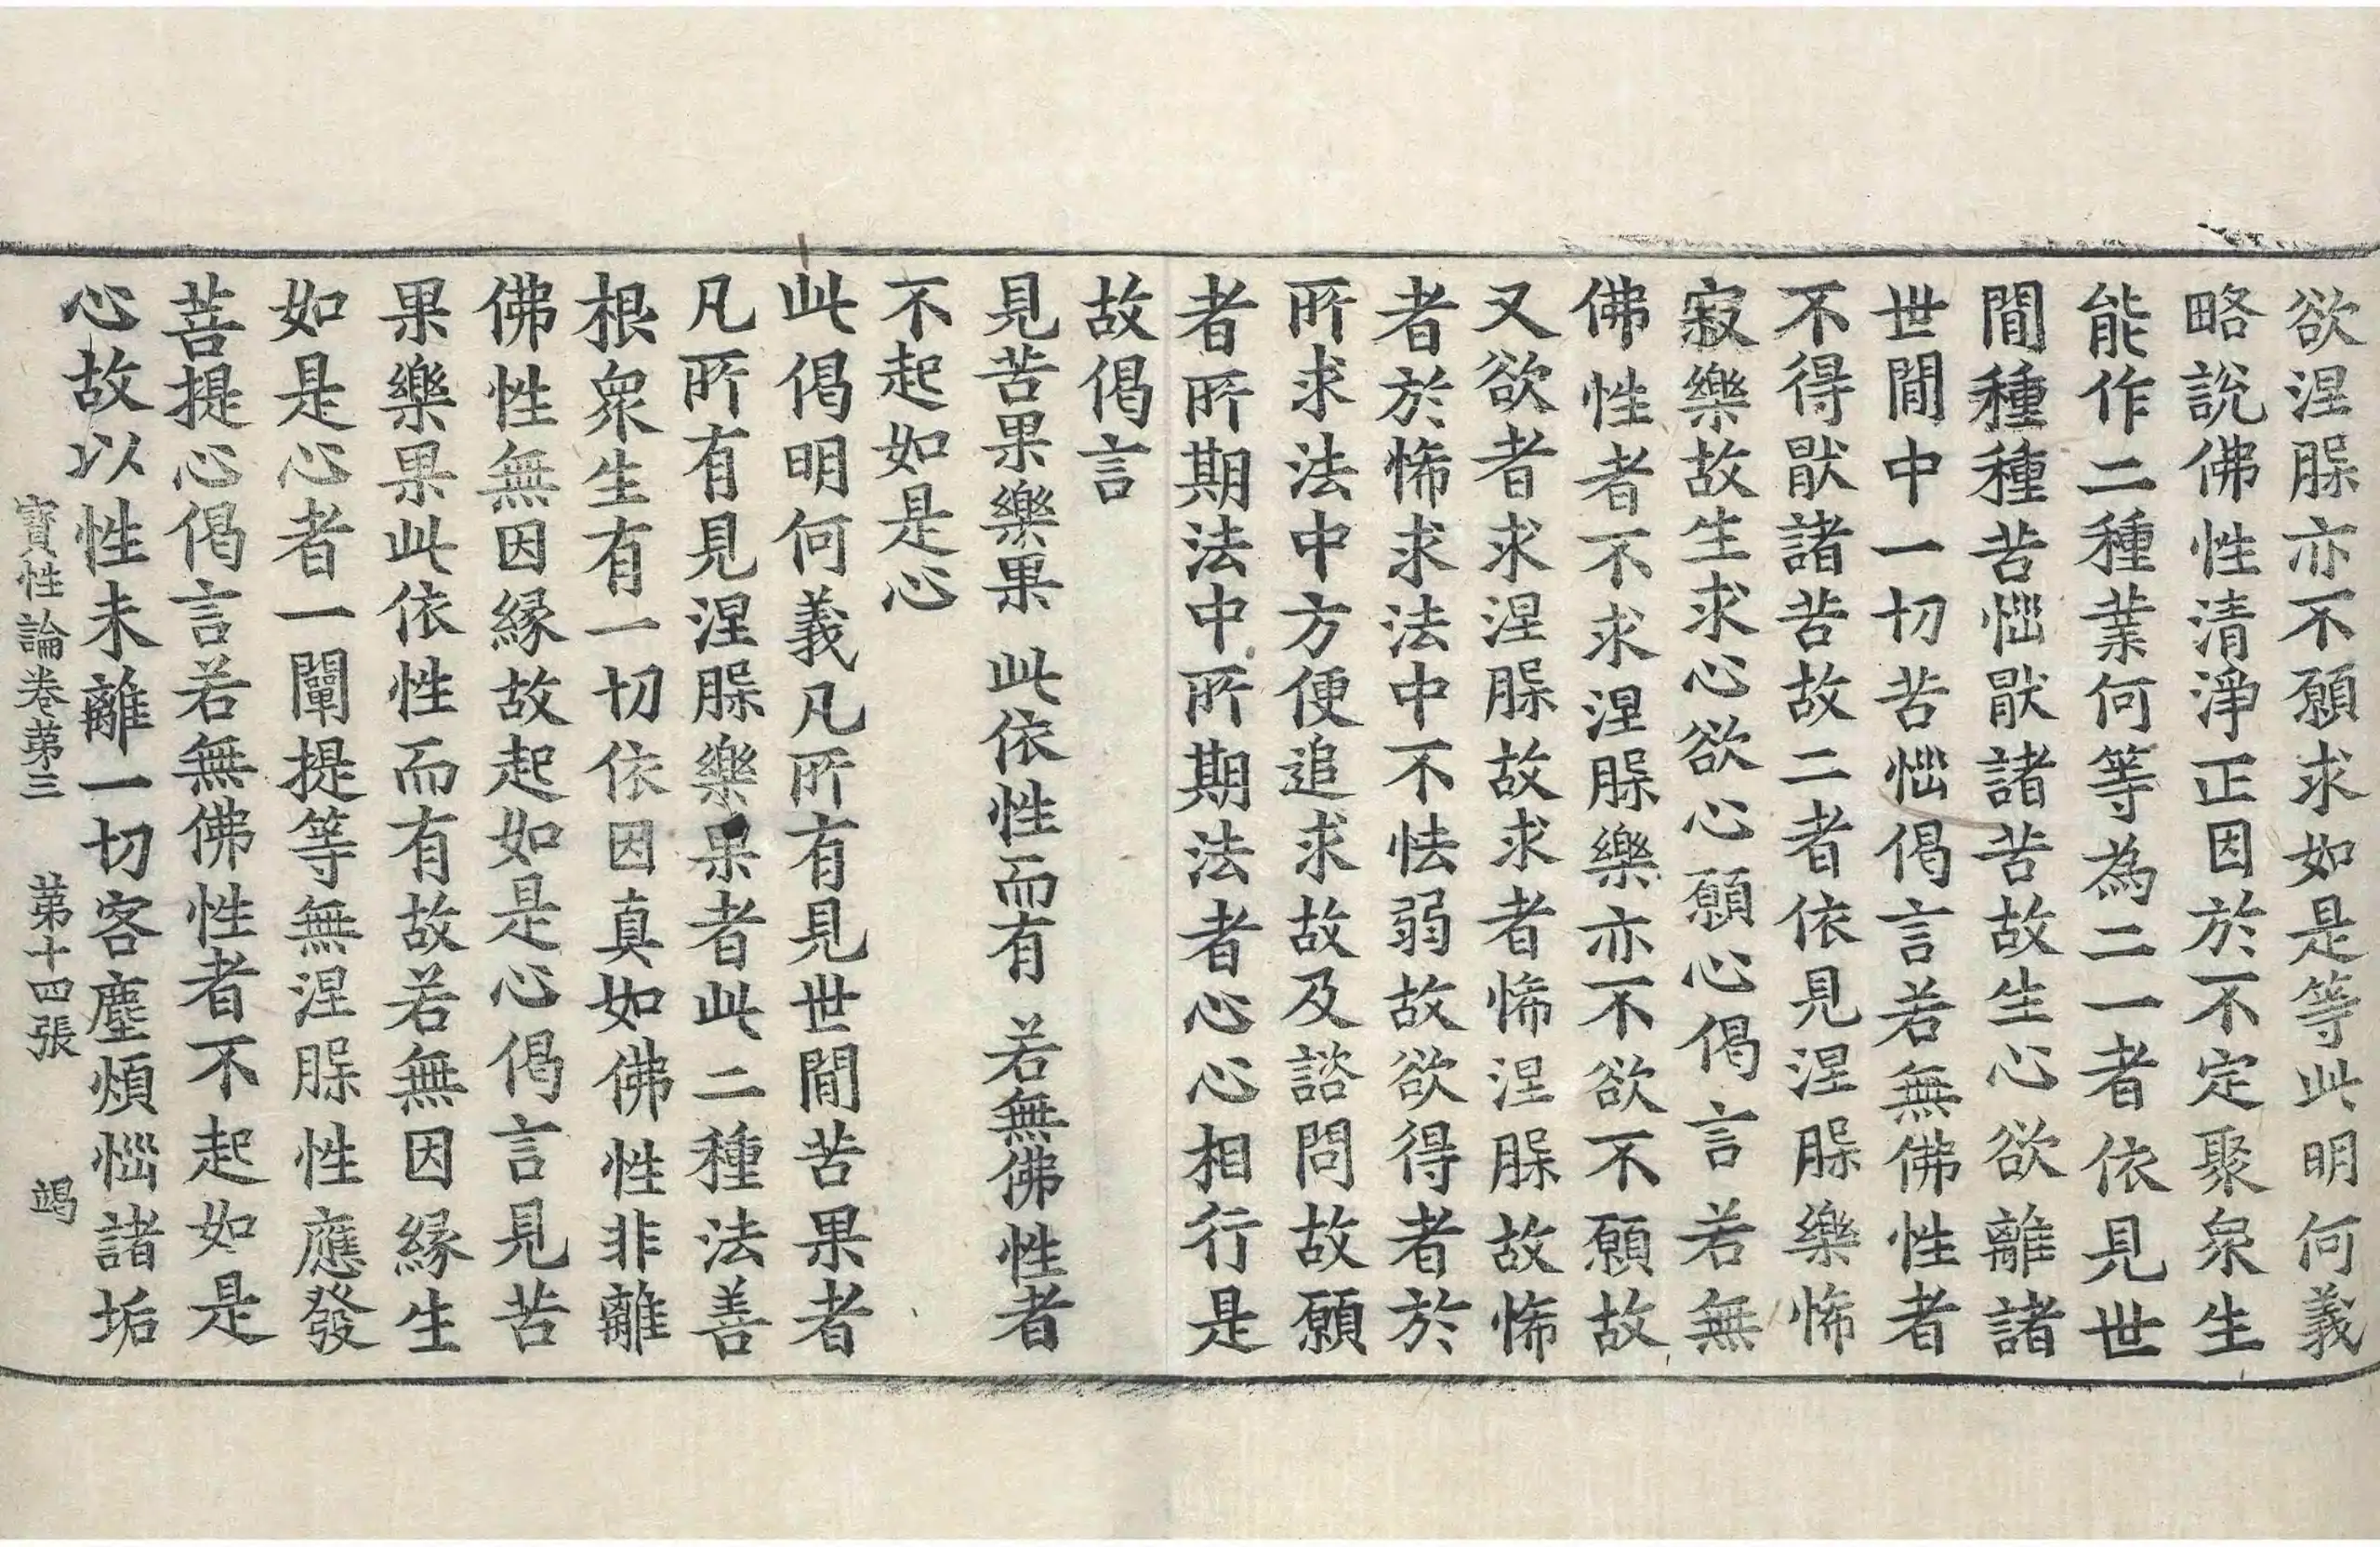 欲涅槃亦不願求如是等此明何義
略說佛性清淨正因於不定聚衆生
能作二種業何等為二一者依見世
閒種種苦惱厭諸苦故生心欲離諸
世閒中一切苦惱偈言若無佛性者
不得厭諸苦故二者依見涅槃樂悕
寂樂故生求心欲心願心偈言若無
佛性者不求涅槃樂亦不欲不願故
又欲者求涅槃故求者悕涅槃故悕
者於悕求法中不怯弱故欲得者於
所求法中方便追求故及諮問故願
者所期法中所期法者心心相行是
故偈言
見苦果樂果 此依性而有 若無佛性者
不起如是心
此偈明何義凡所有見世閒苦果者
凡所有見涅槃樂果者此二種法善
根衆生有一切依因真如佛性非離
佛性無因緣故起如是心偈言見苦
果樂果此依性而有故若無因緣生
如是心者一闡提等無涅槃性應發
菩提心偈言若無佛性者不起如是
心故以性未離一切客塵煩惱諸垢
寶性論卷第三 第十四張 竭